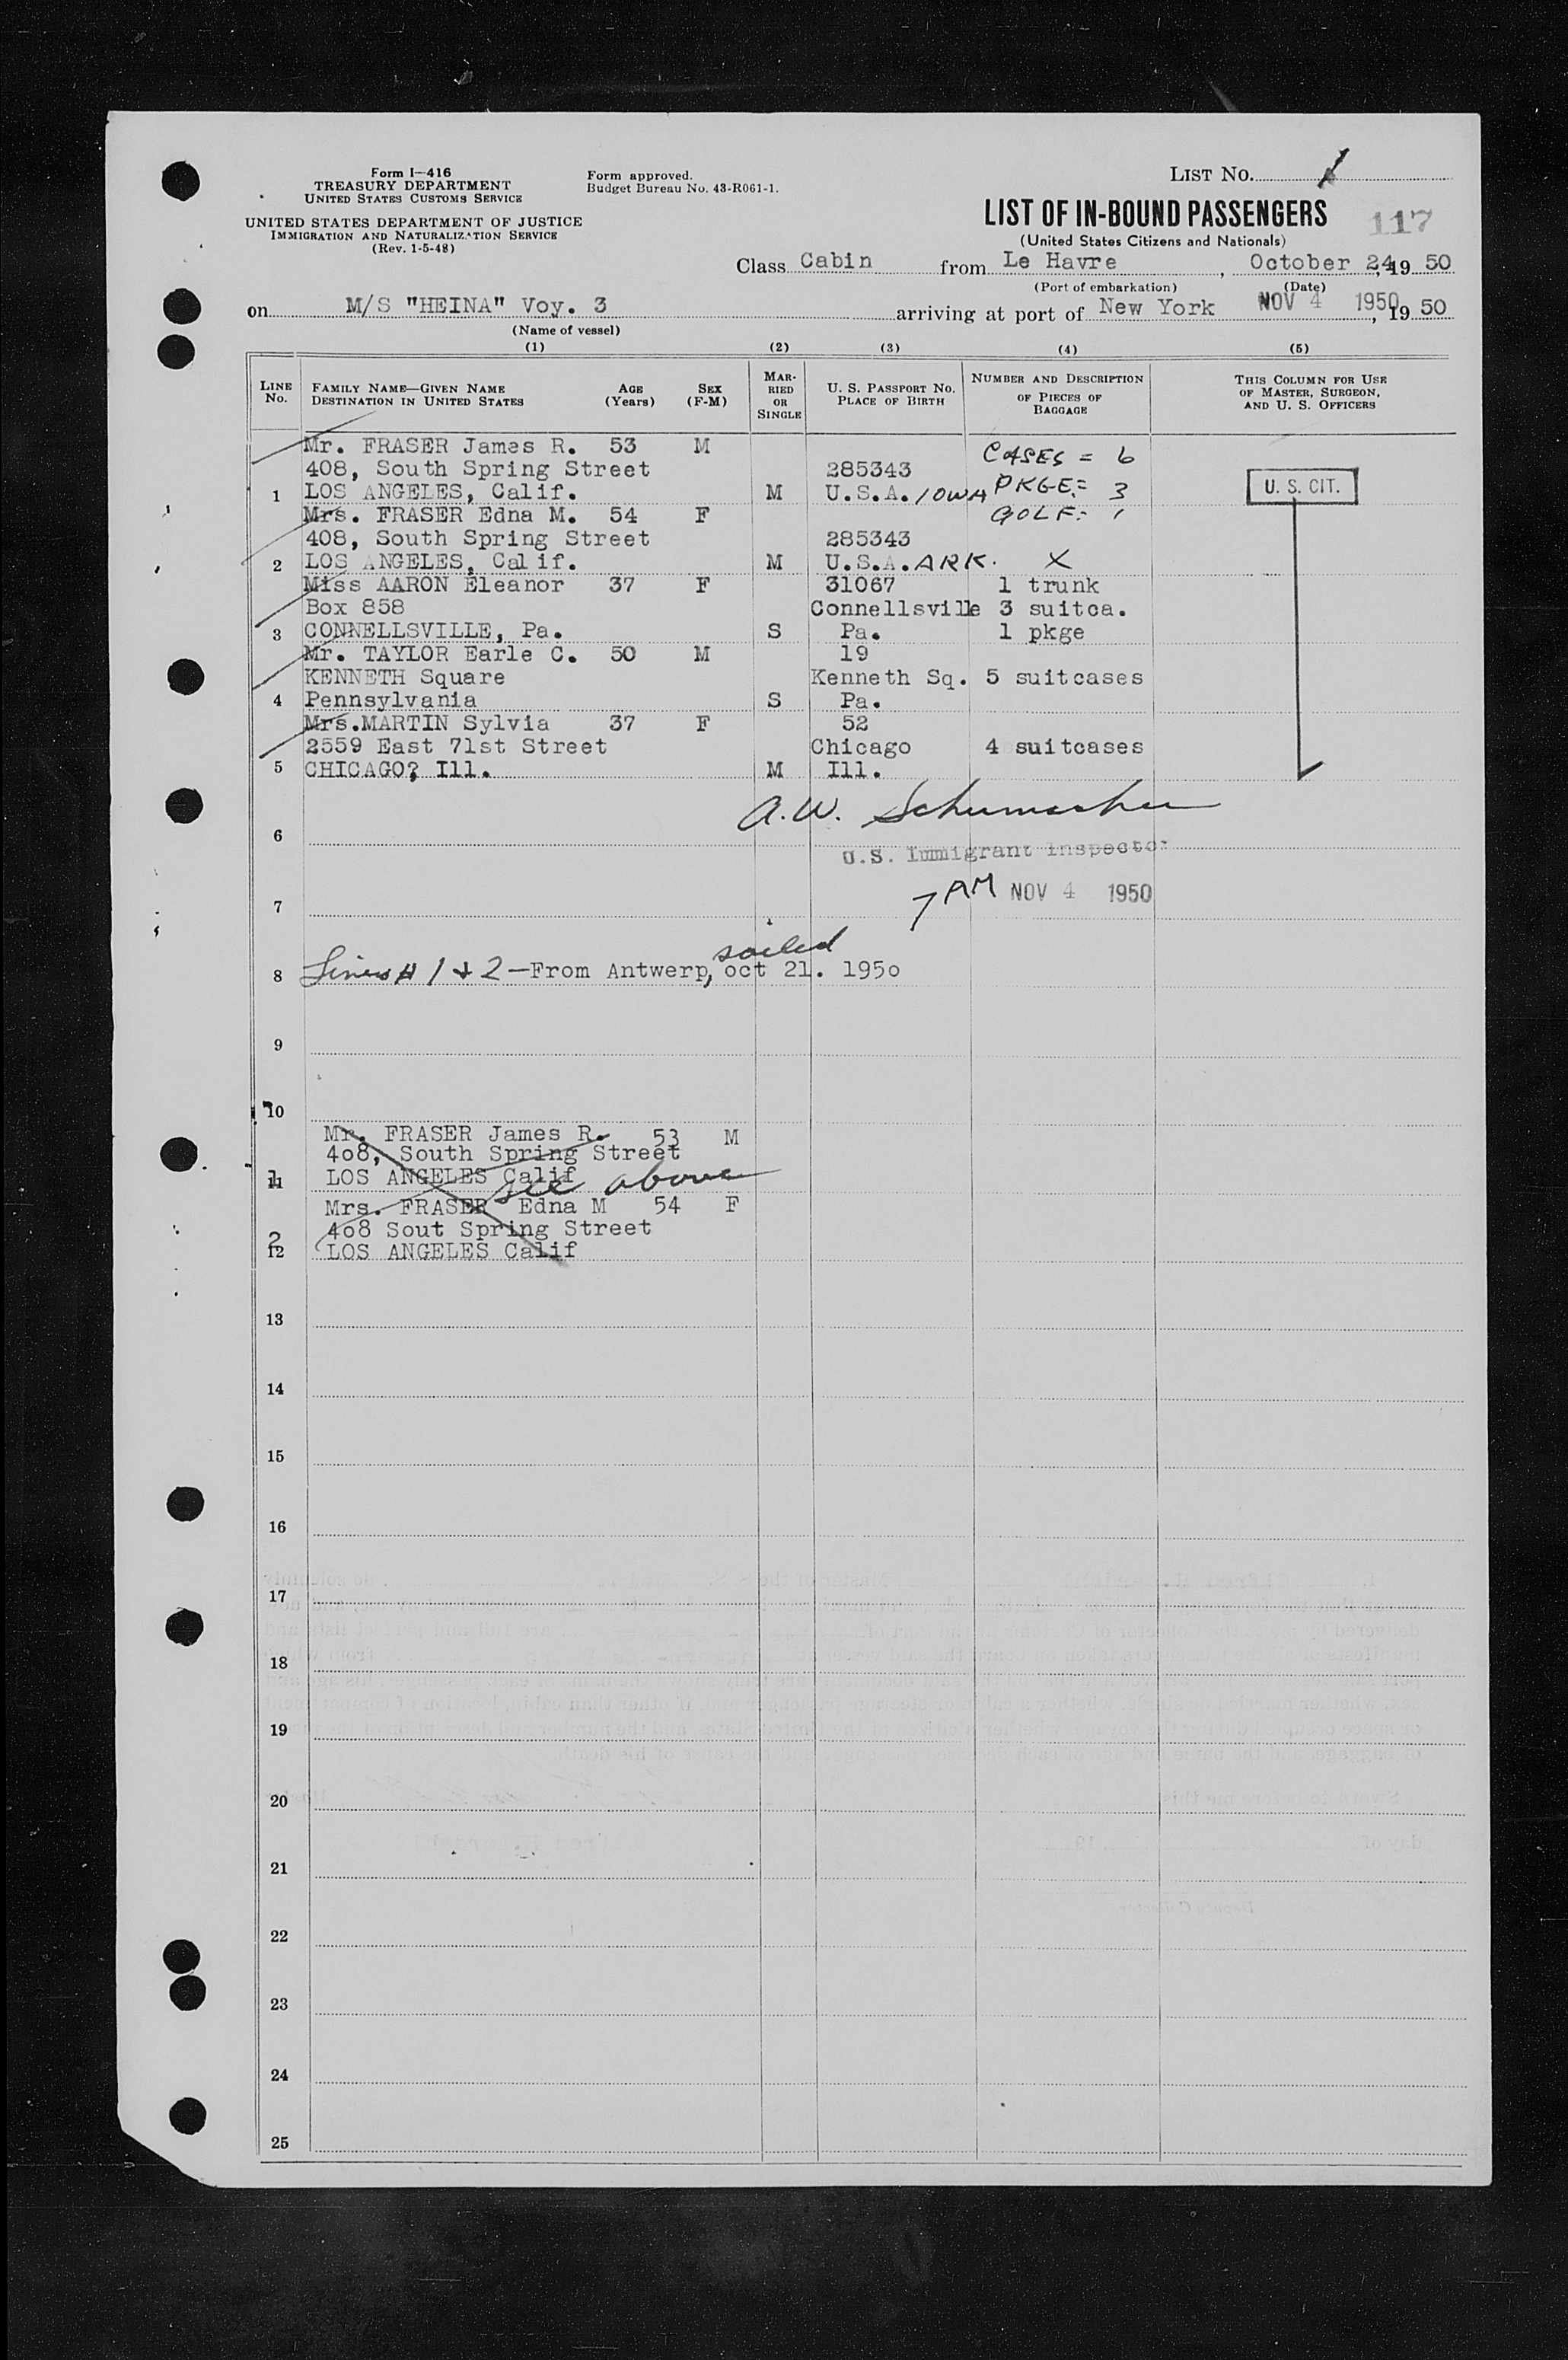 Form I-416
TREASURY DEPARTMENT
UNITED STATES CUSTOMS SERVICE
UNITED STATES DEPARTMENT OF JUSTICE
IMMIGRATION AND NATURALIZATION SERVICE
(Rev. 1-5-48)
Form approved.
Budget Bureau No. 43-R061-1.
LIST NO. 1
LIST OF IN-BOUND PASSENGERS 117
(United States Citizens and Nationals)
Class Cabin from Le Havre, October 24, 19 50
(Port of embarkation) (Date)
on M/S "HEINA" Voy. 3 arriving at port of New York NOV 4 1950, 19 50
(Name of vessel)
(1) (2) (3) (4) (5)
LINE No.
FAMILY NAME—GIVEN NAME
DESTINATION IN UNITED STATES
AGE (Years)
SEX (F-M)
MARRIED OR SINGLE
U. S. PASSPORT NO.
PLACE OF BIRTH
NUMBER AND DESCRIPTION OF PIECES OF BAGGAGE
THIS COLUMN FOR USE OF MASTER, SURGEON, AND U. S. OFFICERS
Mr. FRASER James R. 53 M CASES = 6
408, South Spring Street 285343
1 LOS ANGELES, Calif. M U.S.A. IOWA PKGE = 3 U. S. CIT.
Mrs. FRASER Edna M. 54 F GOLF = 1
408, South Spring Street 285343
2 LOS ANGELES, Calif. M U.S.A. ARK. X
Miss AARON Eleanor 37 F 31067 1 trunk
Box 858 Connellsville 3 suitca.
3 CONNELLSVILLE, Pa. S Pa. 1 pkge
Mr. TAYLOR Earle C. 50 M 19
KENNETH Square Kenneth Sq. 5 suitcases
4 Pennsylvania S Pa.
Mrs.MARTIN Sylvia 37 F 52
2559 East 71st Street Chicago 4 suitcases
5 CHICAGO? Ill. M Ill.
A.W. Schumacher
6
U.S. Immigrant Inspector
7 AM NOV 4 1950
7
sailed
8 Lines # 1 + 2 - From Antwerp, oct 21. 195o
9
10
Mr. FRASER James R. 53 M
4o8, South Spring Street
11 1 LOS ANGELES Calif see above
Mrs. FRASER Edna M 54 F
4o8 Sout Spring Street
2
12 LOS ANGELES Calif
13
14
15
16
17
18
19
20
21
22
23
24
25